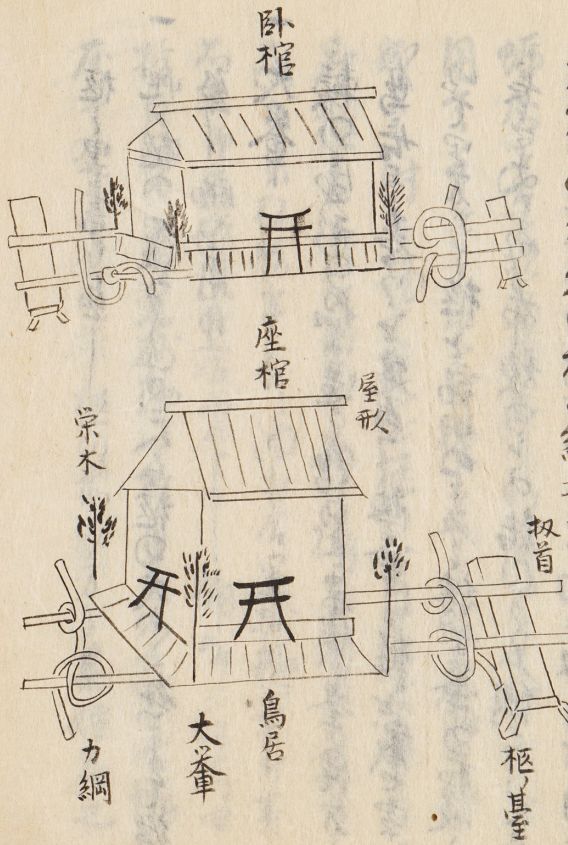 卧棺
座棺
屋形
栄木
扱首
鳥居
大輦
力綱
柩ノ臺